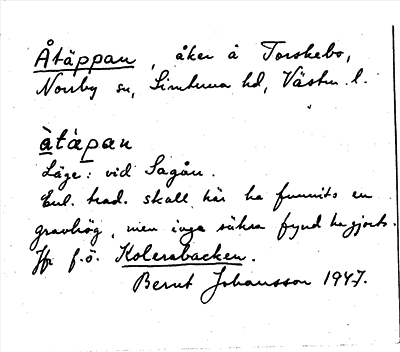 Åtäppan, åker å Torskebo,
Norrby sn, Simtuna hd, Västm. l.
àtäpan
Läge: vid Sagån.
Enl. trad. skall här ha funnits en
gravhög, men inga säkra fynd ha gjorts.
Jfr f.ö. Kolerabacken.
Bernt Johansson 1947.